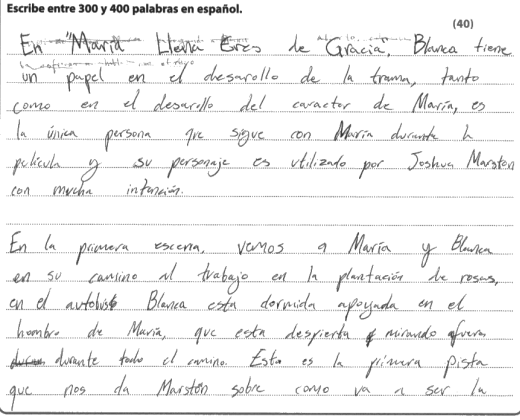 Escribe entre 300 y 400 palabras en español.
(40)
En "María Llena Eres de Gracia", Blanca tiene
un papel en el desarollo de la trama, tanto
como en el desarollo del caracter de María, es
la única persona que sigue con María durante la
película y su personaje es utilizado por Joshua Marston
con mucha intención.
En la primera escena, vemos a María y Blanca
en su camino al trabajo en la plantación de rosas,
en el autobus Blanca esta dormida apoyada en el
hombro de María, que esta despierta mirando afuera
durante todo el camino. Esta es la primera pista
que nos da Marston sobre como va a ser la